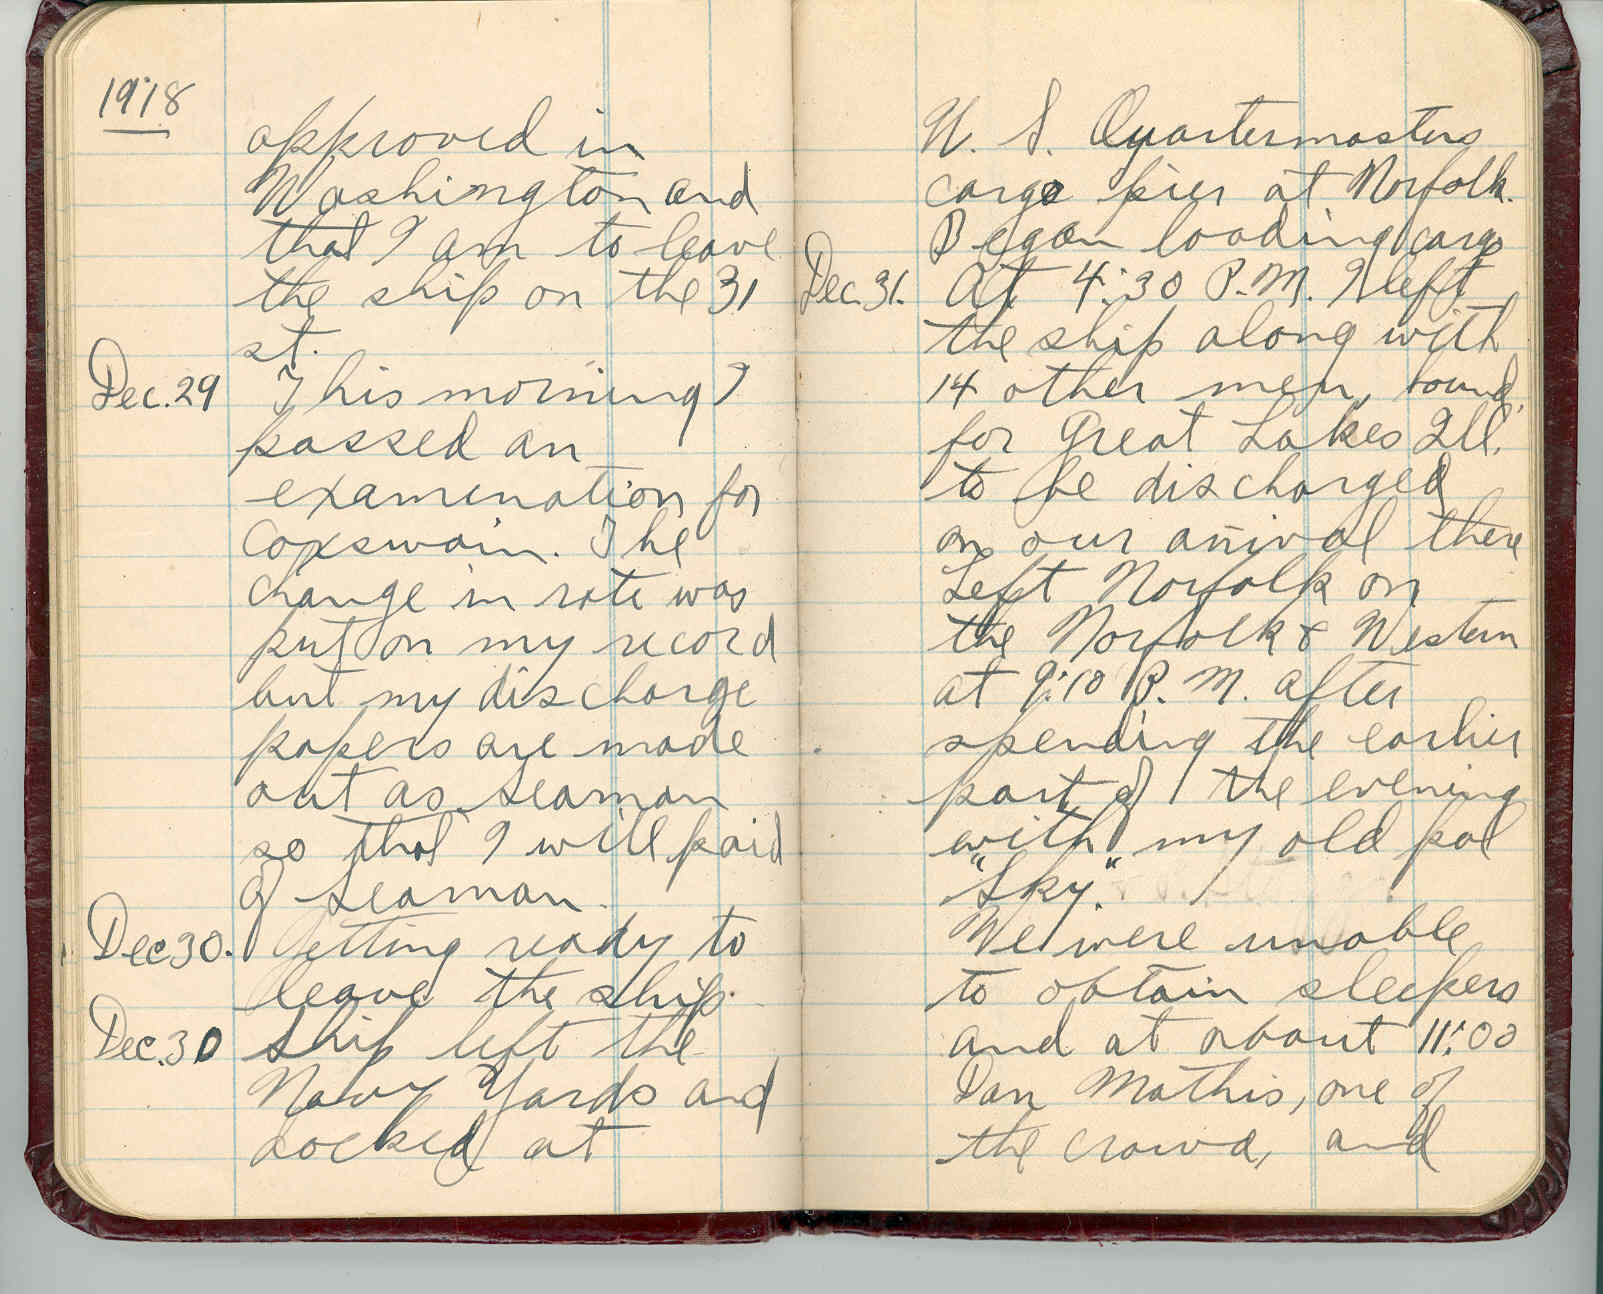 1918
approved in
Washington and
that I am to leave
the ship on the 31
st.
Dec. 29 This morning I
passed an
examination for
Coxswain. The
change in rate was
put on my record
but my discharge
papers are made
out as seaman
so that I will paid
of seaman.
Dec 30. Getting ready to
leave the ship.
Dec. 30 Ship left the
Navy Yards and
docked at
U. S. Quartermasters
cargo pier at Norfolk.
Began loading cargo
Dec. 31. At 4:30 P.M. I left
the ship along with
14 other men, bound
for Great Lakes Ill.
to be discharged
on our arrival there
Left Norfolk on
the Norfolk & Western
at 9:10 P.M. after
spending the earlier
part of the evening
with my old pal
"Sky."
We were unable
to obtain sleepers
and at about 11:00
Dan Mathis, one of
the crowd, and